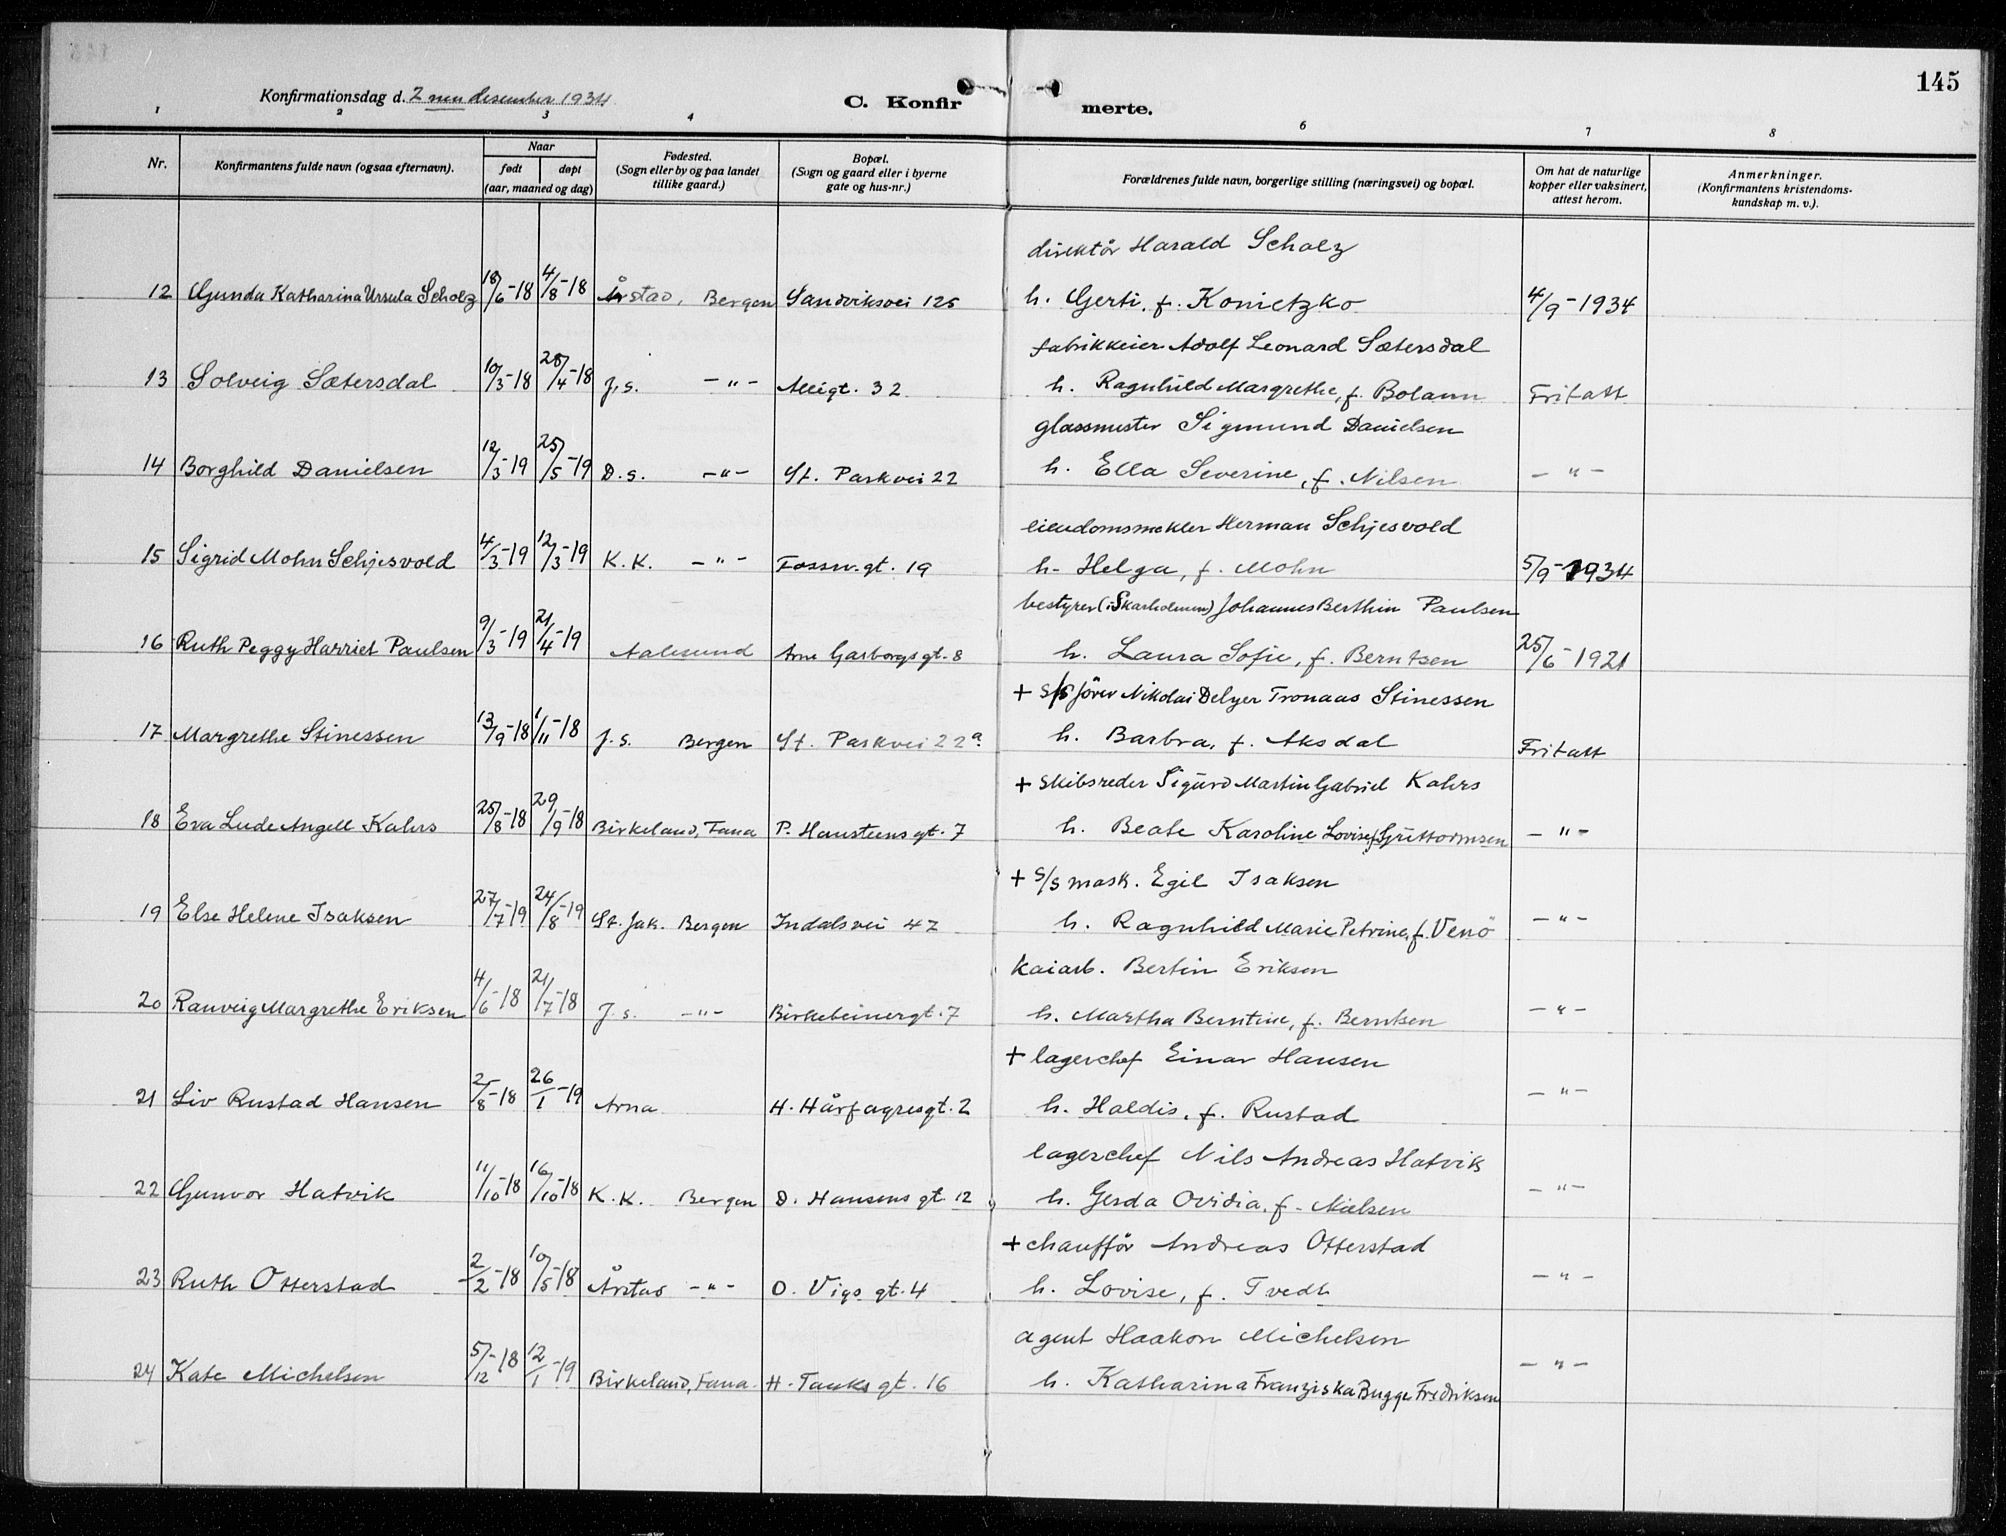 145
Konfirmationsdag d. 2 nen desember 1934
C. Konfirmerte.
1 2 3 4 6 7 8
Nr.
Konfirmantens fulde navn (ogsaa efternavn).
Naar
født døpt
(aar, maaned og dag)
Fødested.
(Sogn eller by og paa landet
tillike gaard.)
Bopæl.
(Sogn og gaard eller i byerne
gate og hus-nr.)
Forældrenes fulde navn, borgerlige stilling (næringsvei) og bopæl.
Om hat de naturlige
kopper eller vaksinert,
attest herom.
Anmerkninger.
(Konfirmantens kristendoms-
kundskap m. v.).
direktör Harald Scholz
12 Gunda Katharina Ursula Scholz 18/6-18 4/8-18 Årstad, Bergen Sandviksvei 125 h. Gerti, f. Konietzko 4/9-1934
fabrikkeier Adolf Leonard Sætersdal
13 Solveig Sætersdal 10/3-18 28/4-18 J.s. -"- Allégt. 32 h. Ragnhild Margrethe, f. Bolann Fritatt
glassmester Sigmund Danielsen
14 Borghild Danielsen 12/3-19 25/5-19 D.s. -"- St. Parkvei 22 h. Ella Severine, f. Nilsen -"-
eiendomsmekler Herman Schjesvold
15 Sigrid Mohn Schjesvold 4/3-19 12/3-19 K.K. -"- Fossw.gt. 19 h. Helga, f. Mohn 5/9-1934
bestyrer (i Skarholmen) Johannes Berthin Paulsen
16 Ruth Peggy Harriet Paulsen 9/3-19 21/4-19 Aalesund Arne Garborgsgt. 8 h. Laura Sofie, f. Berntsen 25/6-1921
+ s/s förer Nikolai Delyer Tronaas Stinessen
17 Margrethe Stinessen 13/9-18 1/11-18 J.s. Bergen St. Parkvei 22a h. Barbra, f. Aksdal Fritatt
+ Skibsreder Sigurd Martin Gabriel Kahrs
18 Eva Lude Angell Kahrs 25/8-18 29/9-18 Birkeland, Fana P. Hansteens gt. 7 h. Beate Karoline Lovise, f. Guttormsen -"-
+ s/s mask. Egil Isaksen
19 Else Helene Isaksen 27/7-19 24/8-19 St. Jak. Bergen Indalsvei 47 h. Ragnhild Marie Petrine, f. Venö -"-
Kaiarb. Bertin Eriksen
20 Ranveig Margrethe Eriksen 4/6-18 21/7-18 J.s. -"- Birkebeinergt. 7 h. Martha Berntine, f. Berntsen -"-
+ lagerchef Einar Hansen
21 Liv Rustad Hansen 2/8-18 26/1-19 Arna H. Hårfagresgt. 2 h. Haldis, f. Rustad -"-
lagerchef Nils Andreas Hatvik
22 Gunvor Hatvik 11/10-18 16/10-18 K.K. Bergen D. Hansens gt. 12 h. Gerda Ovidia, f. Nielsen -"-
+ chaufför Andreas Otterstad
23 Ruth Otterstad 2/2-18 10/5-18 Årstad -"- O. Vigs gt. 4 h. Lovise, f. Tvedt -"-
agent Haakon Michelsen
24 Kate Michelsen 5/12-18 12/1-19 Birkeland, Fana. H. Tanks gt. 16 h. Katharina Franziska Bugge Fredriksen -"-